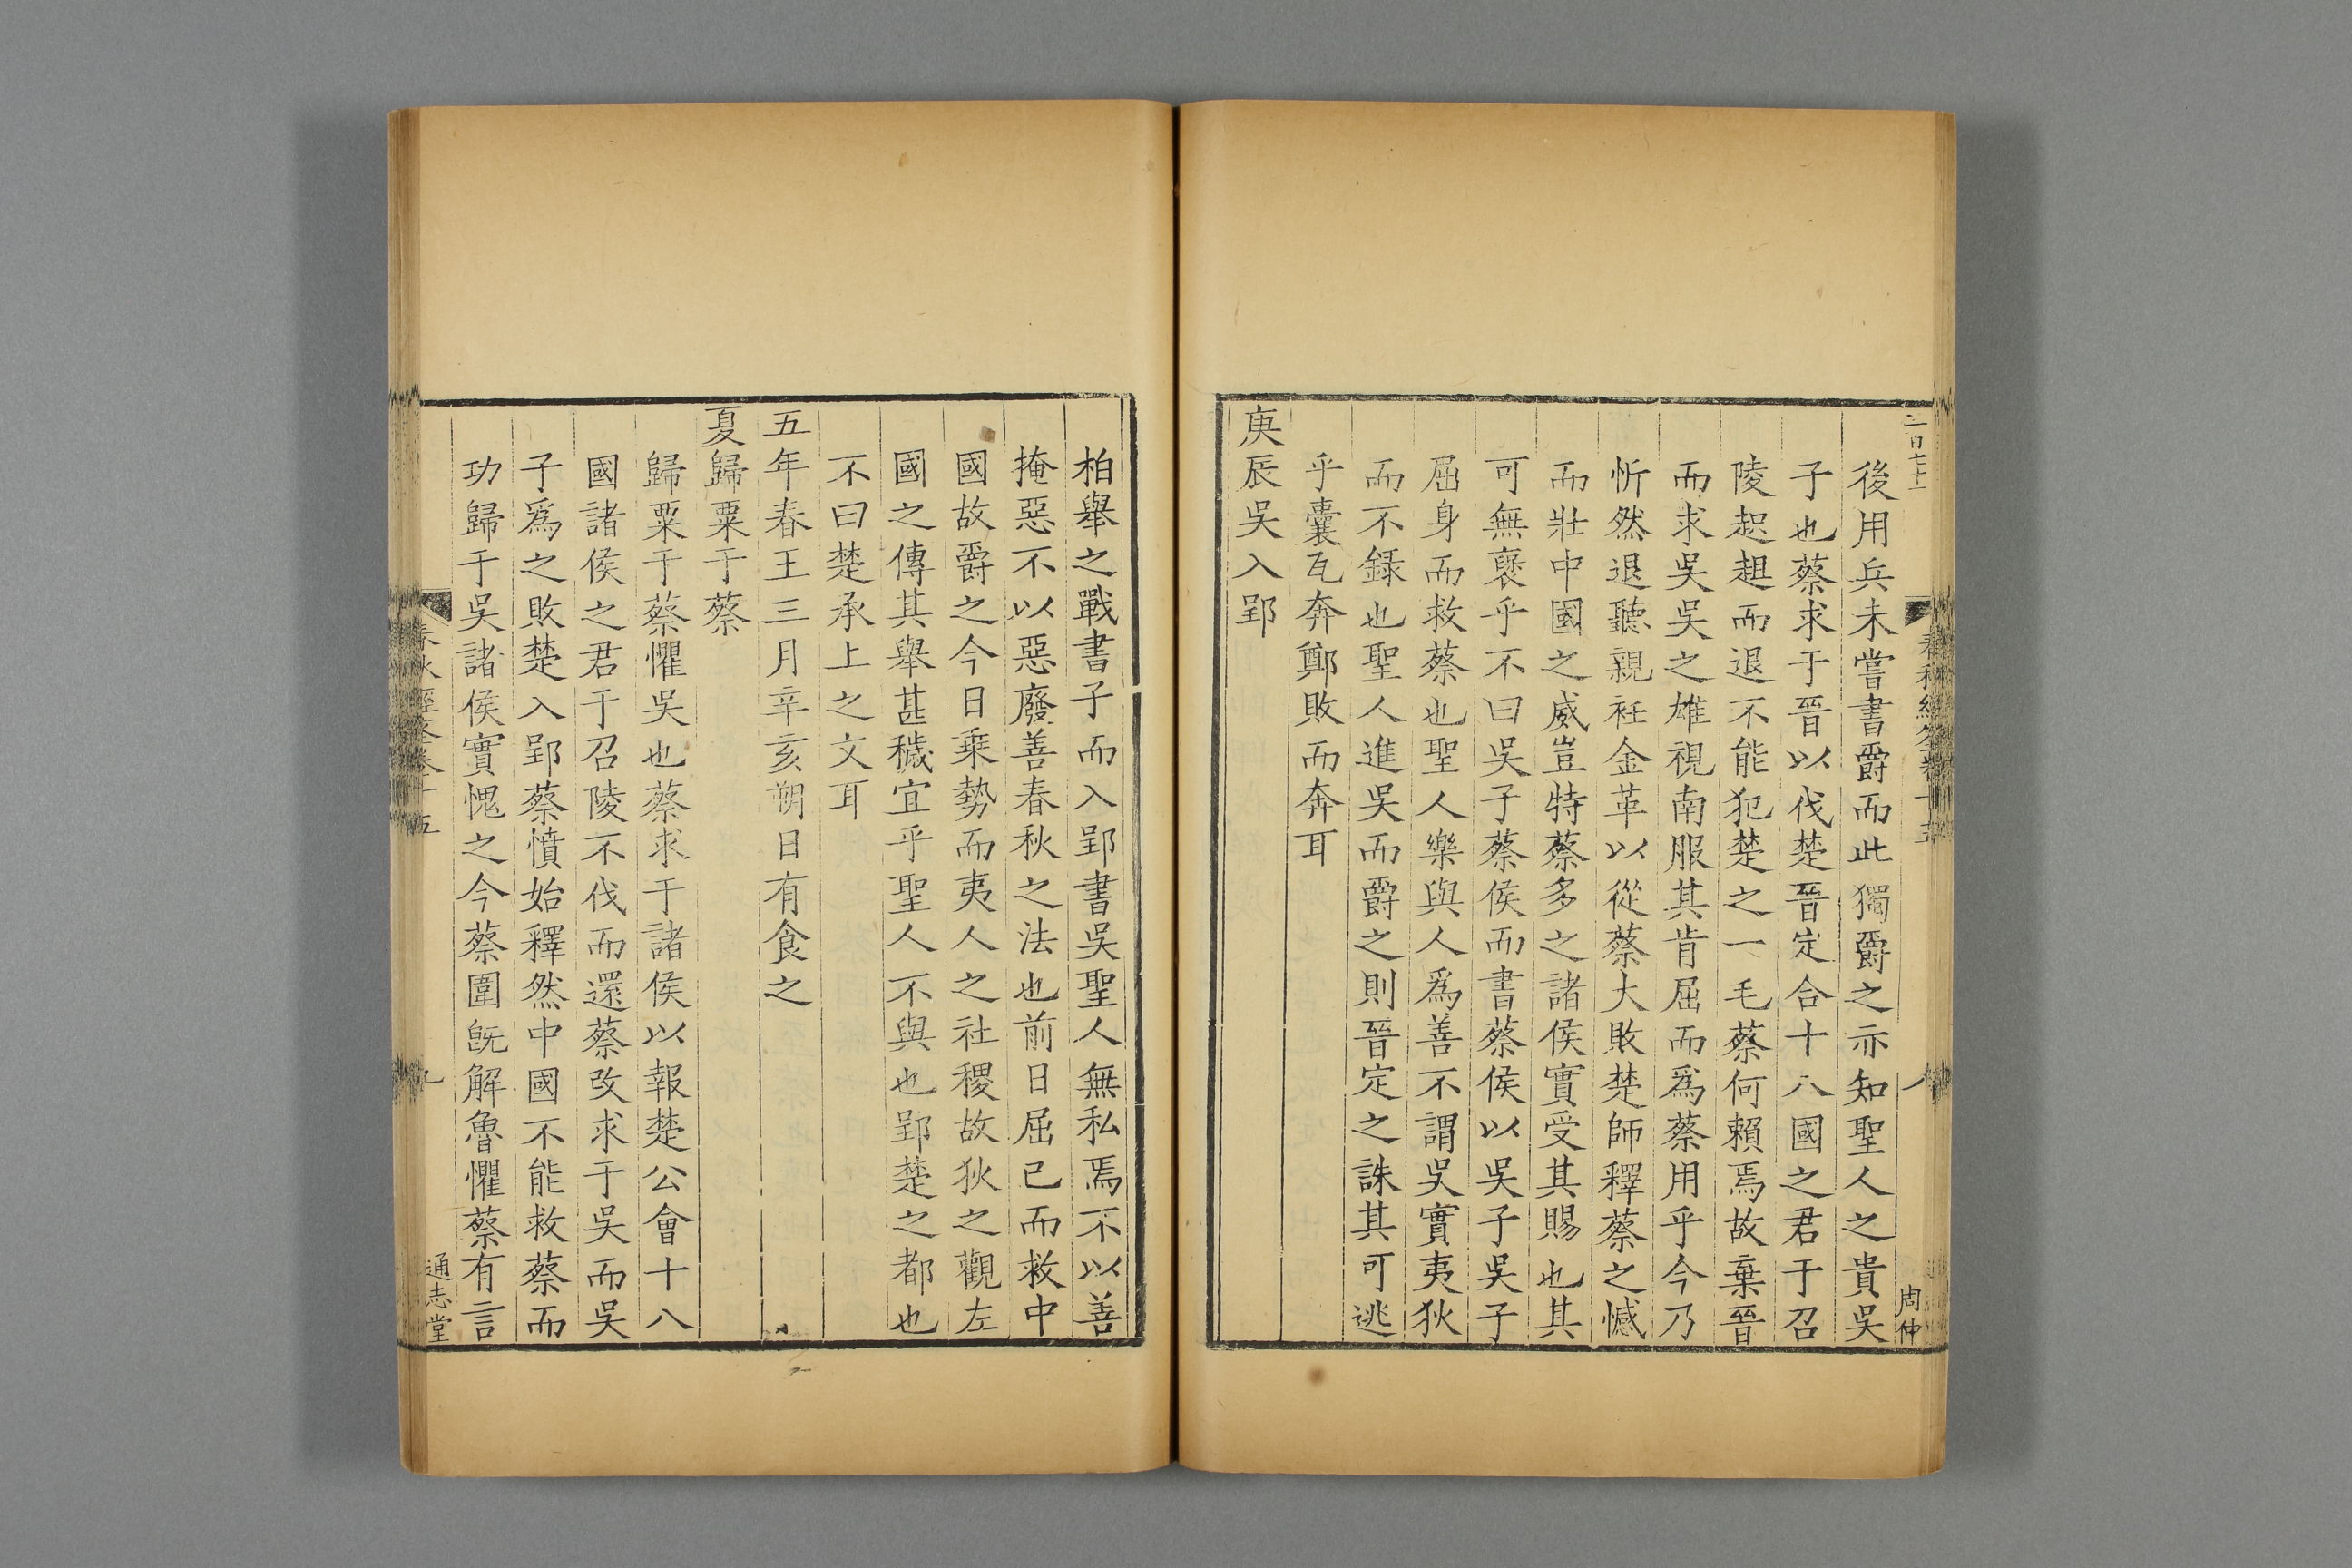 二百七十一
春秋經筌卷十五
八
周仲
後用兵未嘗書爵而此獨爵之亦知聖人之貴吳
子也蔡求于晉以伐楚晉定合十八國之君于召
陵趑趄而退不能犯楚之一毛蔡何賴焉故棄晉
而求吳吳之雄視南服其肯屈而爲蔡用乎今乃
忻然退聽親衽金革以從蔡大敗楚師釋蔡之憾
而壯中國之威豈特蔡多之諸侯實受其賜也其
可無襃乎不曰吳子蔡侯而書蔡侯以吳子吳子
屈身而救蔡也聖人樂與人爲善不謂吳實夷狄
而不録也聖人進吳而爵之則晉定之誅其可逃
乎囊瓦奔鄭敗而奔耳
庚辰吳入郢
柏舉之戰書子而入郢書吳聖人無私焉不以善
掩惡不以惡廢善春秋之法也前日屈已而救中
國故爵之今日乗勢而夷人之社稷故狄之觀左
國之傳其舉甚穢宜乎聖人不與也郢楚之都也
不曰楚承上之文耳
五年春王三月辛亥朔日有食之
夏歸粟于蔡
歸粟于蔡懼吳也蔡求于諸侯以報楚公會十八
國諸侯之君于召陵不伐而還蔡改求于吳而吳
子爲之敗楚入郢蔡憤始釋然中國不能救蔡而
功歸于吳諸侯實愧之今蔡圍旣解魯懼蔡有言
春秋經筌卷十五
九
通志堂